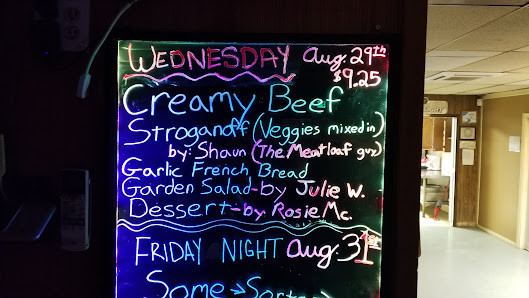 WEDNESDAY Aug. 29th
$9.25
Creamy Beef
Stroganoff (Veggies mixed in)
by: Shaun (The Meatloaf guy)
Garlic French Bread
Garden Salad-by Julie W.
Dessert-by Rosie Mc.
FRIDAY NIGHT Aug. 31st
Some → Sorta